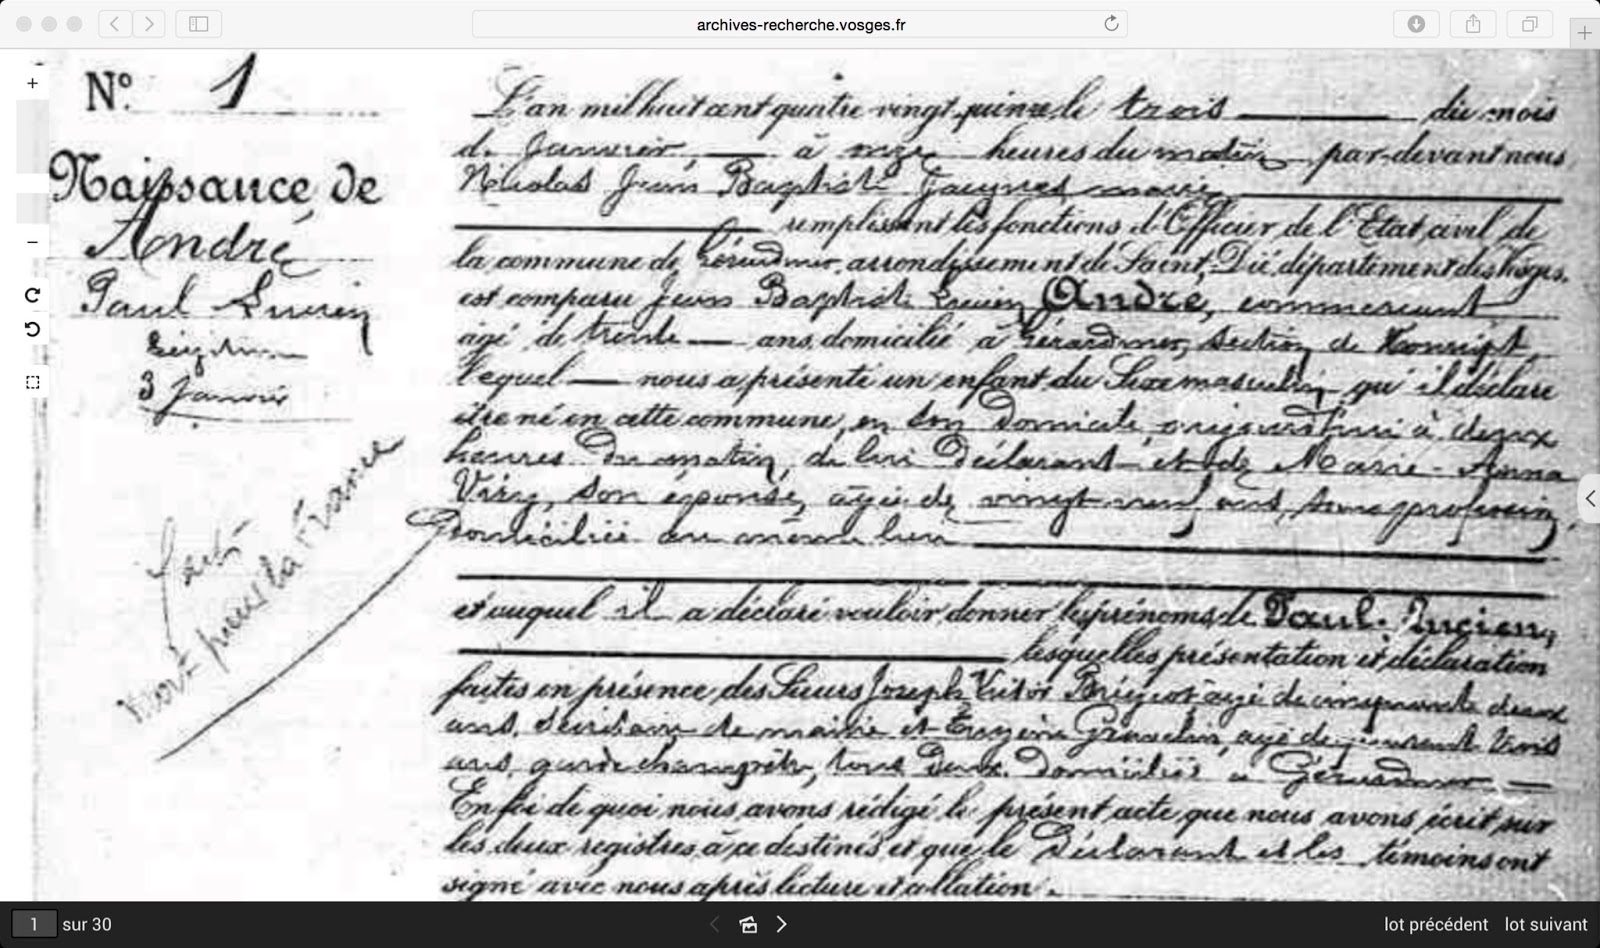 archives-recherche.vosges.fr
N° 1
Naissance de
André
Paul Lucien
Légitime
3 Janvier
Mort pour la France
L'an mil huit cent quatre vingt quinze le trois du mois
de Janvier, à onze heures du matin par-devant nous
Nicolas Jean Baptiste Jacques maire
remplissant les fonctions d'Officier de l'Etat civil de
la commune de Gérardmer, arrondissement de Saint-Dié, département des Vosges,
est comparu Jean Baptiste Lucien André, commerçant
âgé de trente ans, domicilié à Gérardmer, section de
lequel nous a présenté un enfant du Sexe masculin qu'il déclare
être né en cette commune, en son domicile aujourd'hui à deux
heures du matin, de lui Déclarant et de Marie-Anna
Viry, son épouse, âgée de vingt neuf ans, sans profession,
Domiciliée au même lieu
et auquel il a déclaré vouloir donner les prénoms de Paul Lucien,
lesquelles présentation et déclaration
faites en présence des Sieurs Joseph Victor âgé de cinquante deux
ans, secrétaire de mairie et Eugène âgé de quarante trois
ans, garde champêtre, tous deux domiciliés à Gérardmer
En foi de quoi nous avons rédigé le présent acte que nous avons écrit sur
les deux registres à ce destinés et que le Déclarant et les témoins ont
signé avec nous après lecture et collation.
1 sur 30
lot précédent lot suivant